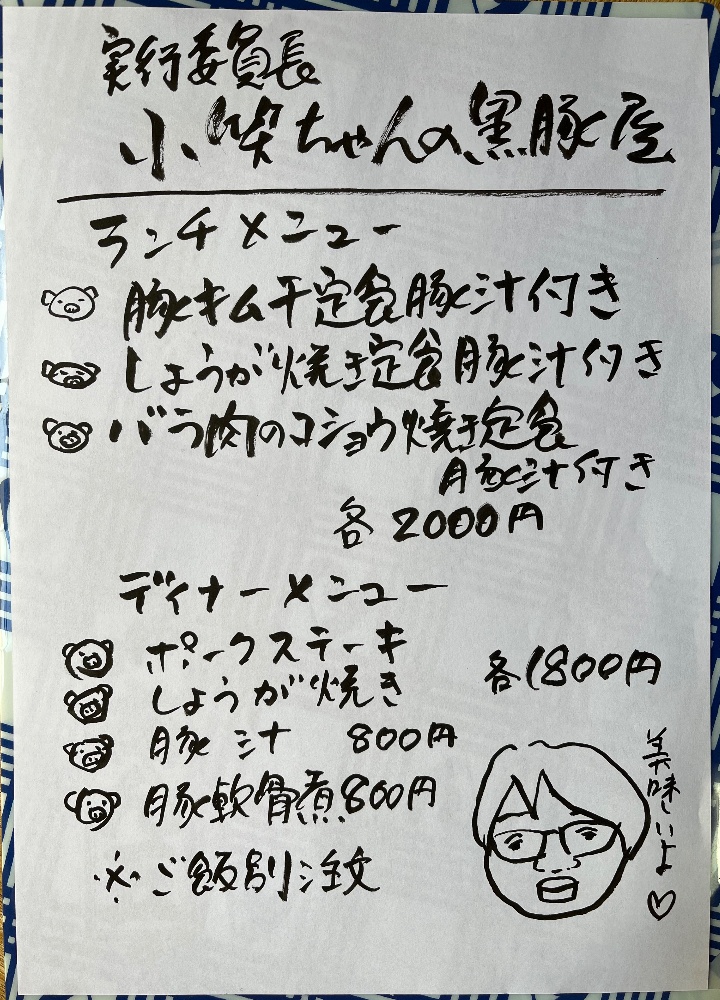 実行委員長
小笑ちゃんの黒豚屋
ランチメニュー
豚キムチ定食豚汁付き
しょうが焼き定食豚汁付き
バラ肉のコショウ焼き定食
豚汁付き
各2000円
ディナーメニュー
ポークステーキ
しょうが焼き
各1800円
豚汁 800円
豚軟骨煮800円
※ご飯別注文
美味しいよ♡